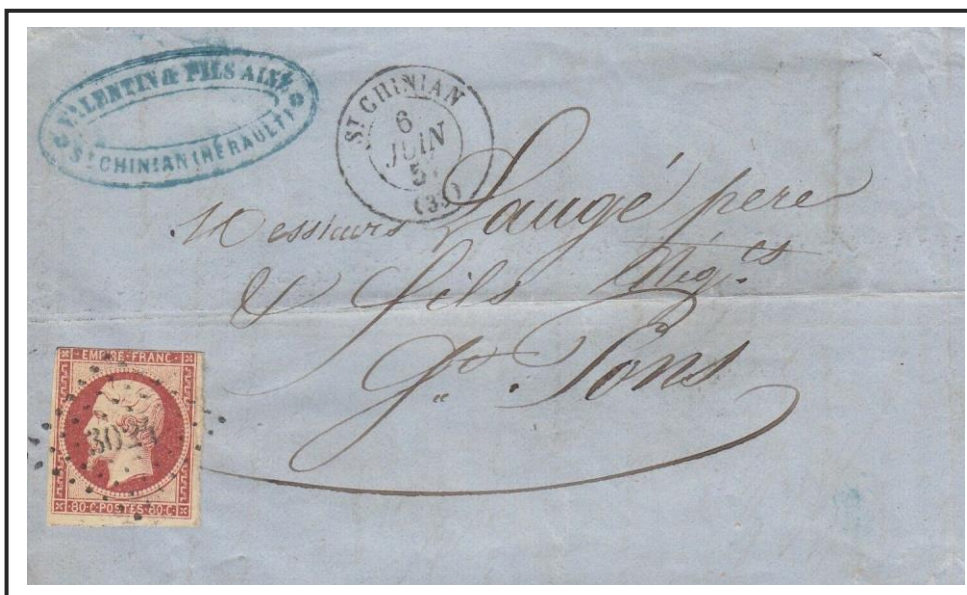 VALENTIN & FILS AINÉ
ST CHINIAN (HÉRAULT)
ST CHINIAN
6
JUIN
Messieurs Laugé pere
& fils Négts
St. Pons
EMPIRE FRANC
80·C·POSTES·80·C